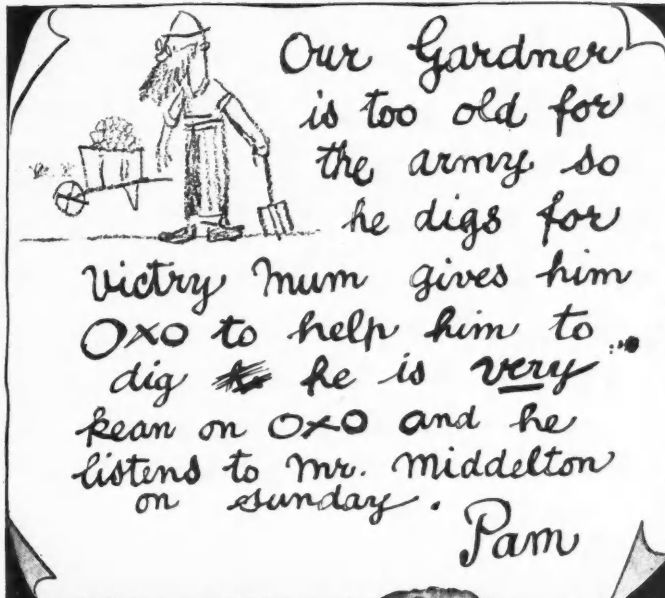 Our Gardner
is too old for
the army so
he digs for
victry Mum gives him
OXO to help him to
dig he is very
kean on OXO and he
listens to Mr. Middelton
on sunday.
Pam